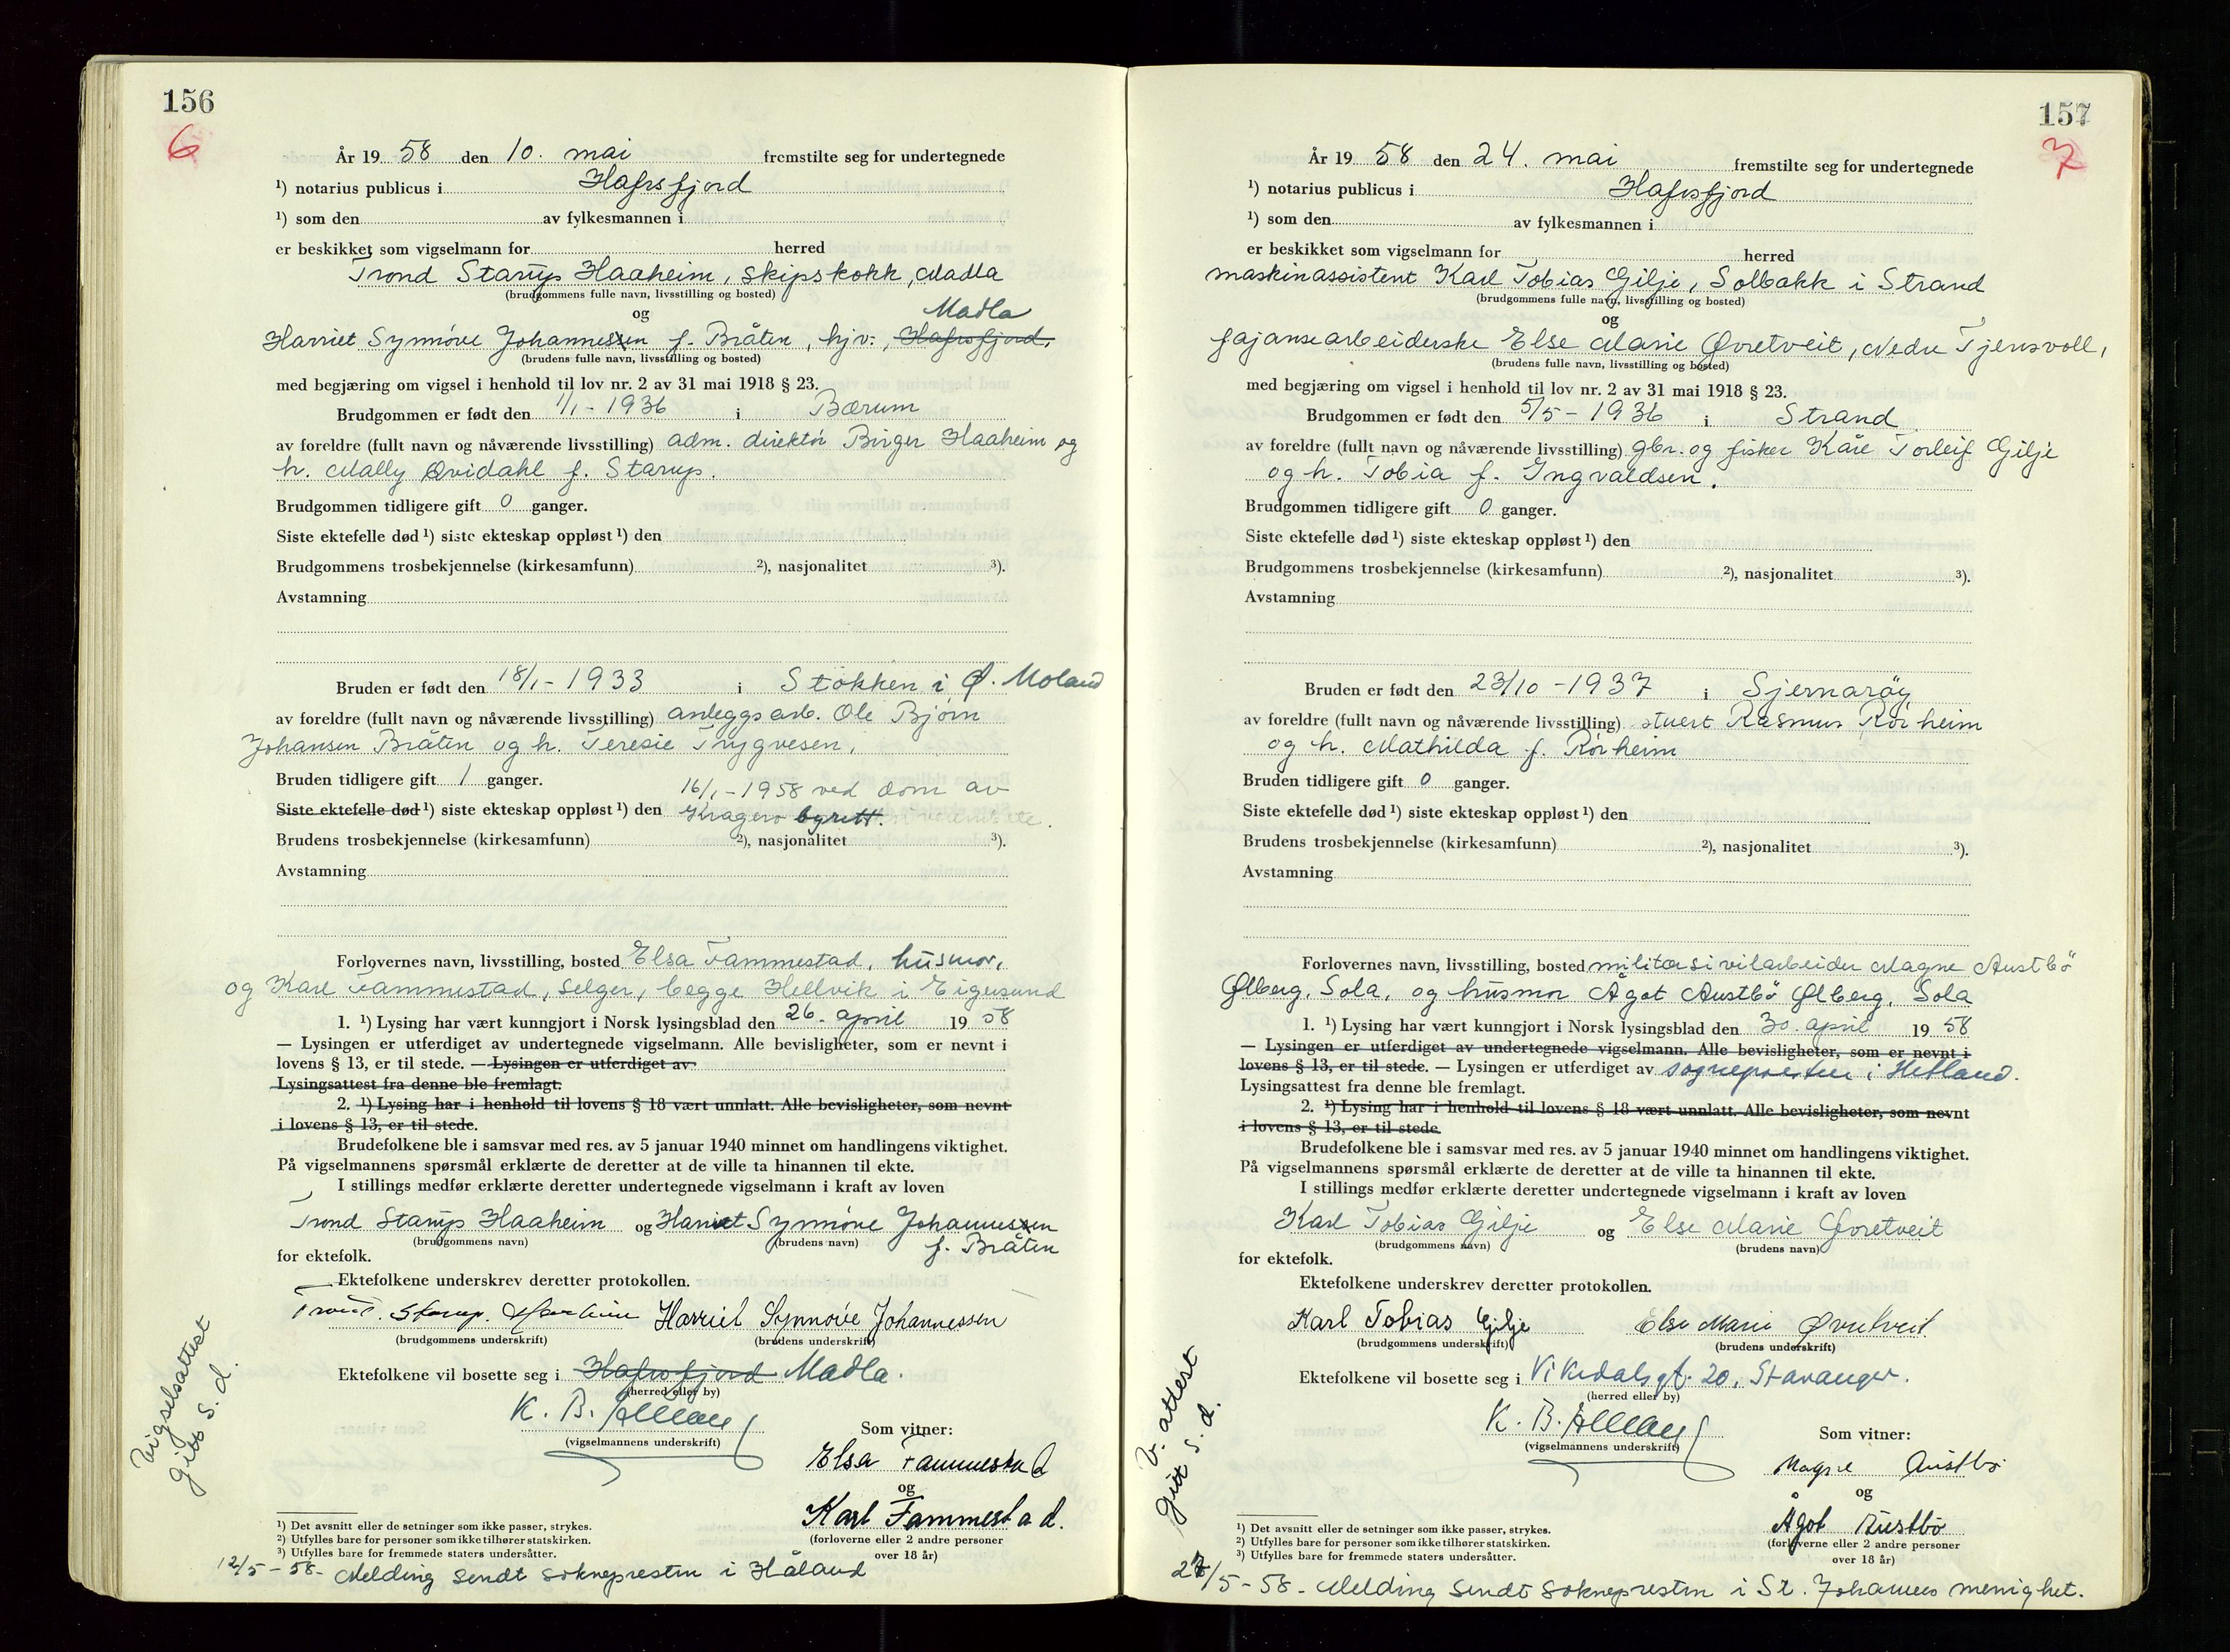 156
6
År 19 58 den 10. mai fremstilte seg for undertegnede
¹) notarius publicus i Hafrsfjord
¹) som den av fylkesmannen i
er beskikket som vigselmann for herred
Trond Starup Haaheim, skipskokk, Madla
(brudgommens fulle navn, livsstilling og bosted)
og Madla
Harriet Synnøve Johannessen f. Bråten, hjv., Hafrsfjord.
(brudens fulle navn, livsstilling og bosted)
med begjæring om vigsel i henhold til lov nr. 2 av 31 mai 1918 § 23.
Brudgommen er født den 1/1 - 1936 i Bærum
av foreldre (fullt navn og nåværende livsstilling) adm. direktør Birger Haaheim og
h. Mally Øvidahl f. Starup.
Brudgommen tidligere gift 0 ganger.
Siste ektefelle død ¹) siste ekteskap oppløst ¹) den
Brudgommens trosbekjennelse (kirkesamfunn) ²), nasjonalitet ³).
Avstamning
Bruden er født den 18/1 - 1933 i Stokken i Ø. Moland
av foreldre (fullt navn og nåværende livsstilling) anleggsarb. Ole Bjørn
Johansen Bråten og h. Teresie Trygvesen,
Bruden tidligere gift 1 ganger.
16/1 - 1958 ved dom av
Siste ektefelle død ¹) siste ekteskap oppløst ¹) den Kragerø byrett.
Brudens trosbekjennelse (kirkesamfunn) ²), nasjonalitet ³).
Avstamning
Forlovernes navn, livsstilling, bosted Elsa Fammestad, husmor,
og Karl Fammestad, selger, begge Hellvik i Eigersund
1. ¹) Lysing har vært kunngjort i Norsk lysingsblad den 26. april 19 58
— Lysingen er utferdiget av undertegnede vigselmann. Alle bevisligheter, som er nevnt i
lovens § 13, er til stede. — Lysingen er utferdiget av
Lysingsattest fra denne ble fremlagt.
2. ¹) Lysing har i henhold til lovens § 18 vært unnlatt. Alle bevisligheter, som nevnt
i lovens § 13, er til stede.
Brudefolkene ble i samsvar med res. av 5 januar 1940 minnet om handlingens viktighet.
På vigselmannens spørsmål erklærte de deretter at de ville ta hinannen til ekte.
I stillings medfør erklærte deretter undertegnede vigselmann i kraft av loven
Trond Starup Haaheim og Harriet Synnøve Johannessen
(brudgommens navn) (brudens navn) f. Bråten
for ektefolk.
Ektefolkene underskrev deretter protokollen.
Trond. Starup. Haaheim Harriet Synnøve Johannessen
(brudgommens underskrift) (brudens underskrift)
Ektefolkene vil bosette seg i Hafrsfjord Madla.
(herred eller by)
K. B.
(vigselmannens underskrift)
Som vitner:
Elsa Fammestad
og
Karl Fammestad.
(forloverne eller 2 andre personer
over 18 år)
Vigselsattest
gitt s. d.
¹) Det avsnitt eller de setninger som ikke passer, strykes.
²) Utfylles bare for personer som ikke tilhører statskirken.
³) Utfylles bare for fremmede staters undersåtter.
12/5 - 58 - Melding sendt sokneprestn i Håland
157
7
År 19 58 den 24. mai fremstilte seg for undertegnede
¹) notarius publicus i Hafrsfjord
¹) som den av fylkesmannen i
er beskikket som vigselmann for herred
maskinassistent Karl Tobias Gilje, Solbakk i Strand
(brudgommens fulle navn, livsstilling og bosted)
og
fajansearbeiderske Else Marie Øvretveit, Nedre Tjensvoll,
(brudens fulle navn, livsstilling og bosted)
med begjæring om vigsel i henhold til lov nr. 2 av 31 mai 1918 § 23.
Brudgommen er født den 5/5 - 1936 i Strand
av foreldre (fullt navn og nåværende livsstilling) gbr. og fisker Kåre Torleif Gilje
og h. Tobia f. Ingvaldsen.
Brudgommen tidligere gift 0 ganger.
Siste ektefelle død ¹) siste ekteskap oppløst ¹) den
Brudgommens trosbekjennelse (kirkesamfunn) ²), nasjonalitet ³).
Avstamning
Bruden er født den 23/10 - 1937 i Sjernarøy
av foreldre (fullt navn og nåværende livsstilling) stuert Rasmus Rørheim
og h. Mathilda f. Rørheim
Bruden tidligere gift 0 ganger.
Siste ektefelle død ¹) siste ekteskap oppløst ¹) den
Brudens trosbekjennelse (kirkesamfunn) ²), nasjonalitet ³).
Avstamning
Forlovernes navn, livsstilling, bosted militærsivilarbeider Magne Austbö
Ølberg, Sola, og husmor Ågot Austbö Ølberg, Sola
1. ¹) Lysing har vært kunngjort i Norsk lysingsblad den 30. april 19 58
— Lysingen er utferdiget av undertegnede vigselmann. Alle bevisligheter, som er nevnt i
lovens § 13, er til stede. — Lysingen er utferdiget av sognepresten i Hetland.
Lysingsattest fra denne ble fremlagt.
2. ¹) Lysing har i henhold til lovens § 18 vært unnlatt. Alle bevisligheter, som nevnt
i lovens § 13, er til stede.
Brudefolkene ble i samsvar med res. av 5 januar 1940 minnet om handlingens viktighet.
På vigselmannens spørsmål erklærte de deretter at de ville ta hinannen til ekte.
I stillings medfør erklærte deretter undertegnede vigselmann i kraft av loven
Karl Tobias Gilje og Else Marie Øvretveit
(brudgommens navn) (brudens navn)
for ektefolk.
Ektefolkene underskrev deretter protokollen.
Karl Tobias Gilje Else Marie Øvretveit
(brudgommens underskrift) (brudens underskrift)
Ektefolkene vil bosette seg i Vikedalsgt. 20, Stavanger.
(herred eller by)
K. B.
(vigselmannens underskrift)
Som vitner:
Magne Austbö
og
Ågot Austbö
(forloverne eller 2 andre personer
over 18 år)
V. attest
gitt s. d.
¹) Det avsnitt eller de setninger som ikke passer, strykes.
²) Utfylles bare for personer som ikke tilhører statskirken.
³) Utfylles bare for fremmede staters undersåtter.
27/5 - 58 - Melding sendt sokneprestn i St. Johannes menighet.